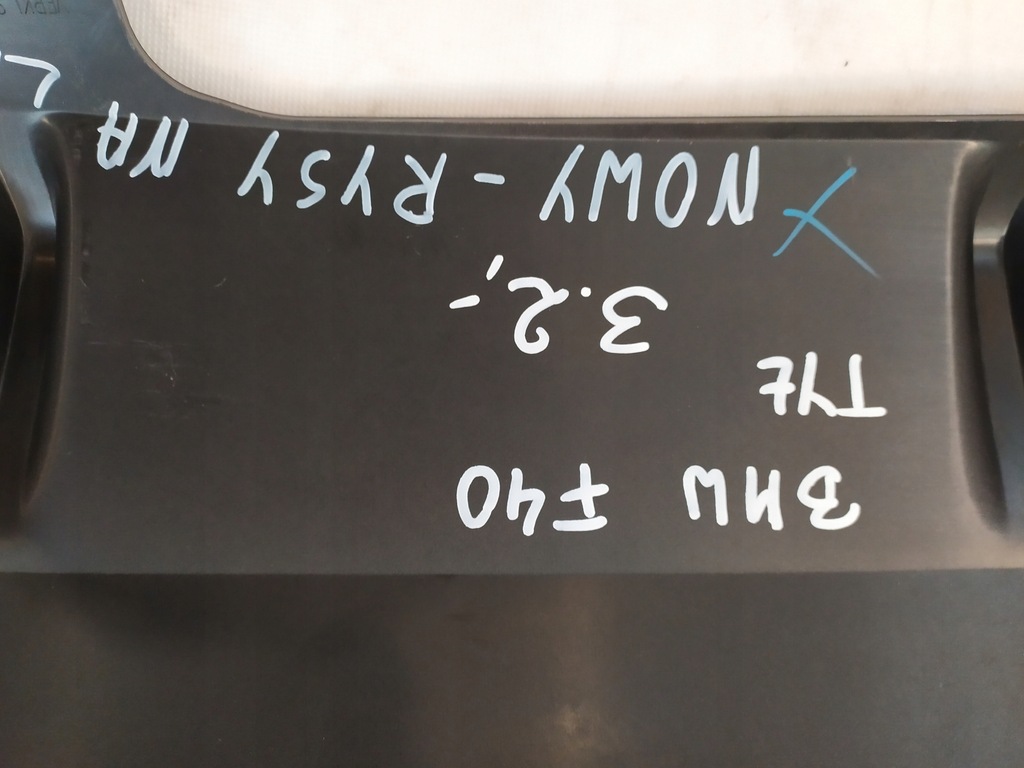 BMW F40
TYŁ
3.2,-
X NOWY - RYSY NA